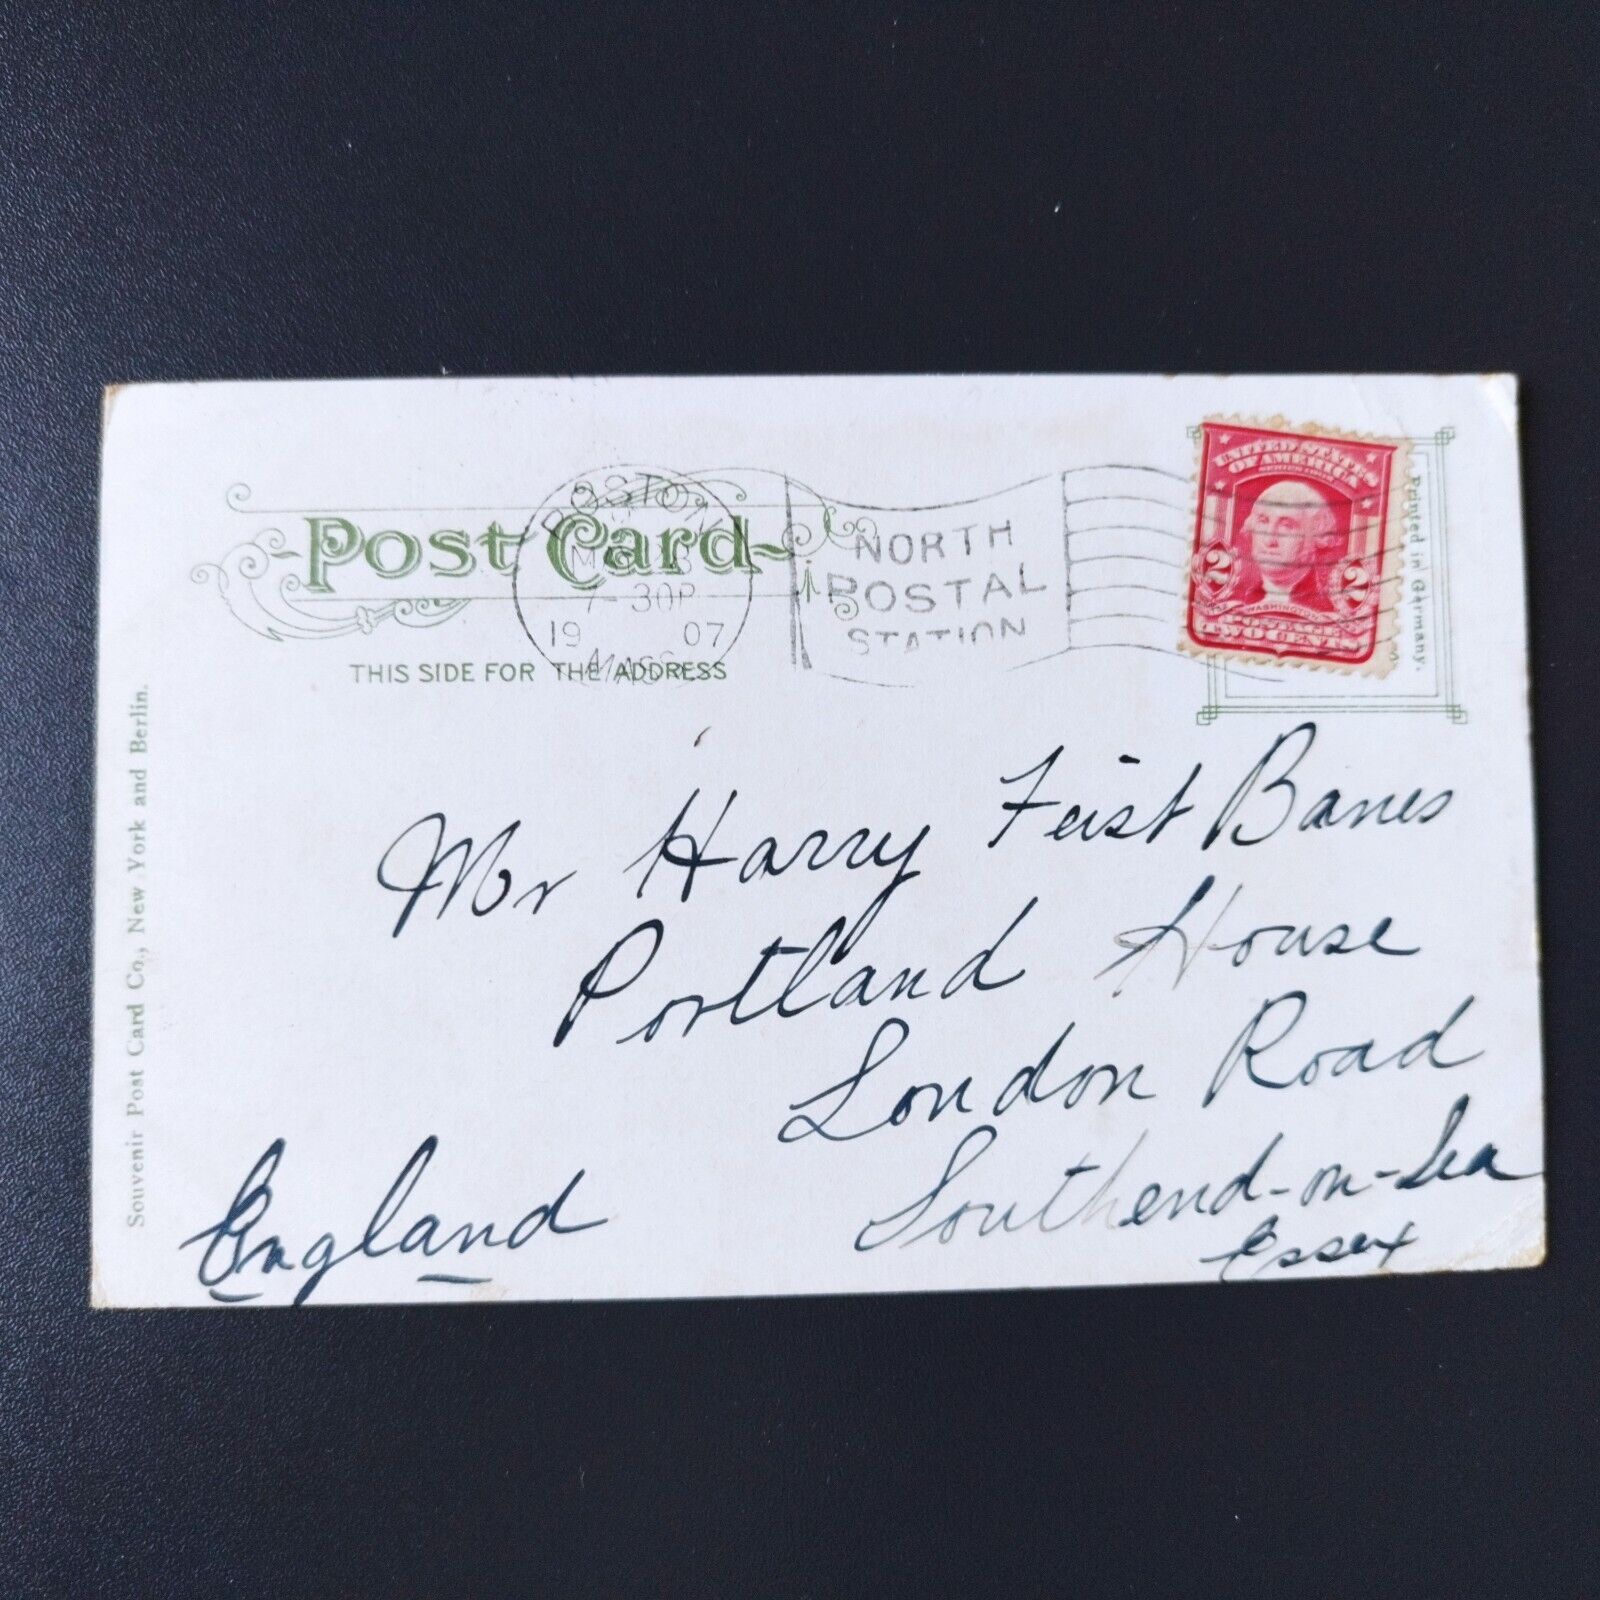 Post Card
THIS SIDE FOR THE ADDRESS
BOSTON
7-30P
19 07
MASS.
NORTH
POSTAL
STATION
UNITED STATES
OF AMERICA
2 2
WASHINGTON
POSTAGE
TWO CENTS
Printed in Germany.
Souvenir Post Card Co., New York and Berlin.
Mr Harry Feist Banes
Portland House
London Road
Southend-on-Sea
Essex
England